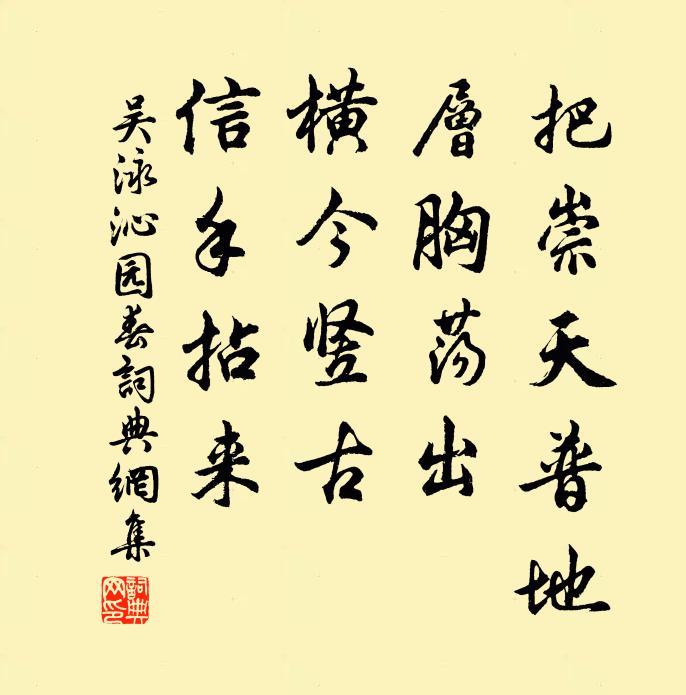 把崇天普地
層胸荡出
橫今竖古
信手拈来
吴泳沁园春詞典網集
詞典
网印